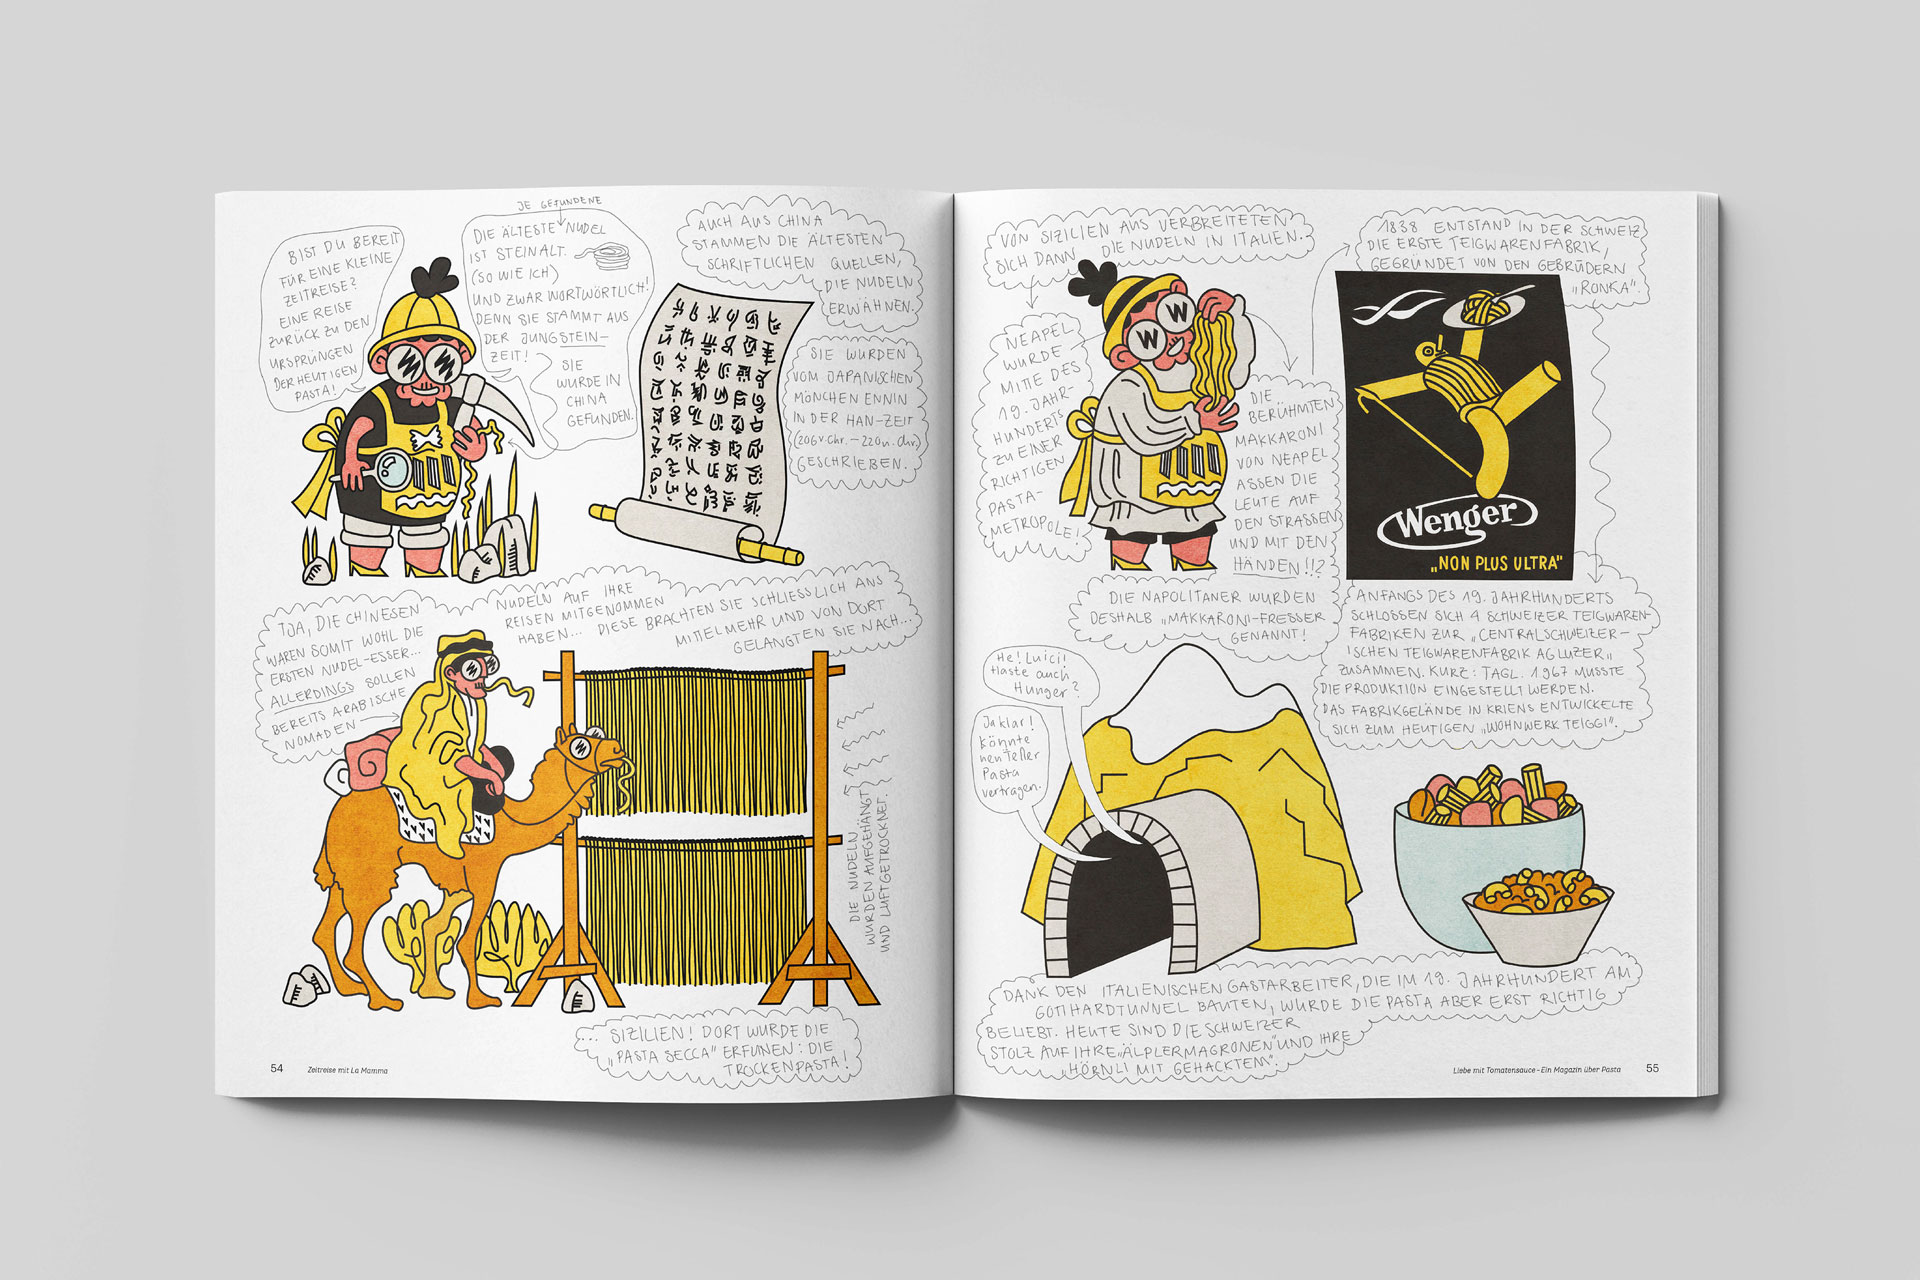 BIST DU BEREIT
FÜR EINE KLEINE
ZEITREISE?
EINE REISE
ZURÜCK ZU DEN
URSPRÜNGEN
DER HEUTIGEN
PASTA!
JE GEFUNDENE
DIE ÄLTESTE NUDEL
IST STEINALT.
(SO WIE ICH)
UND ZWAR WORTWÖRTLICH!
DENN SIE STAMMT AUS
DER JUNGSTEIN-
ZEIT!
SIE
WURDE IN
CHINA
GEFUNDEN.
AUCH AUS CHINA
STAMMEN DIE ÄLTESTEN
SCHRIFTLICHEN QUELLEN,
DIE NUDELN
ERWÄHNEN.
SIE WURDEN
VOM JAPANISCHEN
MÖNCHEN ENNIN
IN DER HAN-ZEIT
(206 v. Chr. – 220 n. Chr.)
GESCHRIEBEN.
TJA, DIE CHINESEN
WAREN SOMIT WOHL DIE
ERSTEN NUDEL-ESSER...
ALLERDINGS SOLLEN
BEREITS ARABISCHE
NOMADEN
NUDELN AUF IHRE
REISEN MITGENOMMEN
HABEN...
DIESE BRACHTEN SIE SCHLIESSLICH ANS
MITTELMEHR UND VON DORT
GELANGTEN SIE NACH...
DIE NUDELN
WURDEN AUFGEHÄNGT
UND LUFTGETROCKNET.
... SIZILIEN! DORT WURDE DIE
„PASTA SECCA" ERFUNEN: DIE
TROCKENPASTA!
54
Zeitreise mit La Mamma
VON SIZILIEN AUS VERBREITETEN
SICH DANN DIE NUDELN IN ITALIEN.
NEAPEL
WURDE
MITTE DES
19. JAHR-
HUNDERTS
ZU EINER
RICHTIGEN
PASTA-
METROPOLE!
W W
DIE
BERÜHMTEN
MAKKARONI
VON NEAPEL
ASSEN DIE
LEUTE AUF
DEN STRASSEN
UND MIT DEN
HÄNDEN!!?
DIE NAPOLITANER WURDEN
DESHALB „MAKKARONI-FRESSER
GENANNT!
1838 ENTSTAND IN DER SCHWEIZ
DIE ERSTE TEIGWARENFABRIK,
GEGRÜNDET VON DEN GEBRÜDERN
„RONKA".
Wenger
„NON PLUS ULTRA"
ANFANGS DES 19. JAHRHUNDERTS
SCHLOSSEN SICH 4 SCHWEIZER TEIGWAREN-
FABRIKEN ZUR „CENTRALSCHWEIZER-
ISCHEN TEIGWARENFABRIK AG LUZER„
ZUSAMMEN. KURZ: TAGL. 1967 MUSSTE
DIE PRODUKTION EINGESTELLT WERDEN.
DAS FABRIKGELÄNDE IN KRIENS ENTWICKELTE
SICH ZUM HEUTIGEN „WOHNWERK TEIGGI".
He! Luici!
Haste auch
Hunger?
Ja klar!
Könnte
nen Teller
Pasta
vertragen.
DANK DEN ITALIENISCHEN GASTARBEITER, DIE IM 19. JAHRHUNDERT AM
GOTTHARDTUNNEL BAUTEN, WURDE DIE PASTA ABER ERST RICHTIG
BELIEBT. HEUTE SIND DIE SCHWEIZER
STOLZ AUF IHRE „ÄLPLERMAGRONEN" UND IHRE
„HÖRNLI MIT GEHACKTEM".
Liebe mit Tomatensauce – Ein Magazin über Pasta
55